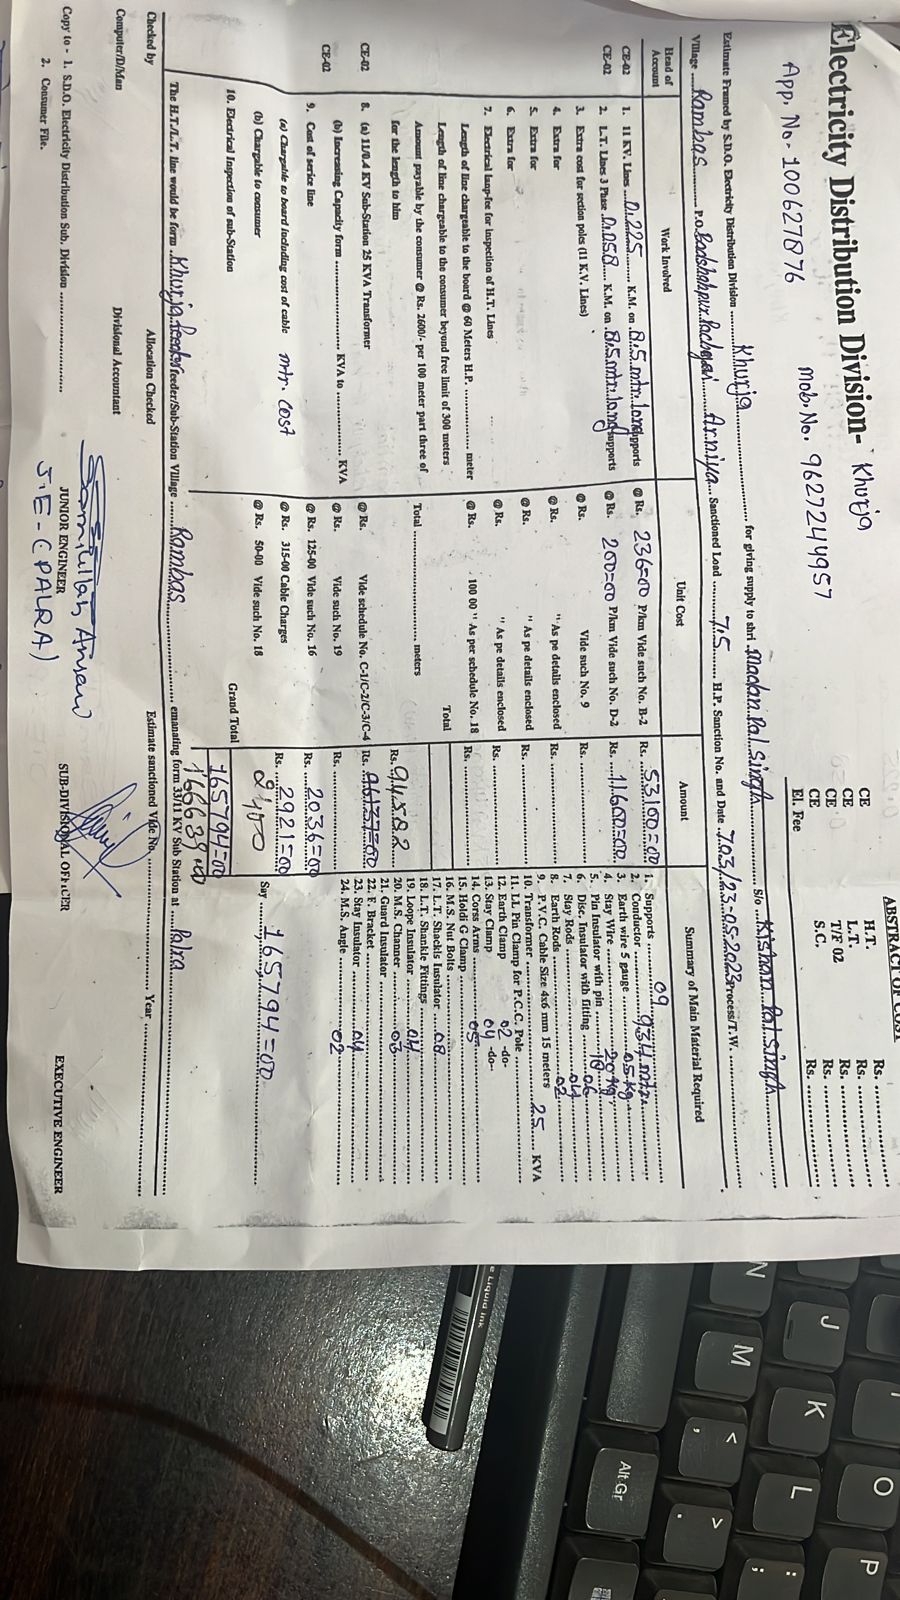 Electricity Distribution Division- Khurja
App. No- 100627876 Mob. No. 9627244957
ABSTRACT OF COST
H.T. Rs.
CE L.T. Rs.
CE T/F 02 Rs.
CE S.C. Rs.
CE Rs.
El. Fee
Estimate Framed by S.D.O. Electricity Distribution Division Khurja for giving supply to shri Madan Pal Singh S/o Kishan Pal Singh
Village Rambas P.O. Arniya Sanctioned Load 7.5 H.P. Sanction No. and Date 703/23-05-2023 Process/T.W.
Head of Account
Work Involved
Unit Cost
Amount
Summary of Main Material Required
CE-02 1. 11 KV. Lines 0.225 K.M. on 8.5 mtr. long supports @ Rs. 236=00 P/km Vide such No. B-2 Rs. 53100=00
CE-02 2. L.T. Lines 3 Phase 0.058 K.M. on 8.5 mtr. long supports @ Rs. 200=00 P/km Vide such No. D-2 Rs. 11600=00
3. Extra cost for section poles (11 K.V. Lines) @ Rs. Vide such No. 9 Rs.
4. Extra for @ Rs. " As pe details enclosed Rs.
5. Extra for @ Rs. " As pe details enclosed Rs.
6. Extra for @ Rs. " As pe details enclosed Rs.
7. Electrical insp-fee for inspection of H.T. Lines @ Rs. 100 00 " As per schedule No. 18 Rs.
Length of line chargeable to the board @ 60 Meters H.P. meter Total
Length of line chargeable to the consumer beyond free limit of 300 meters
Amount payable by the consumer @ Rs. 2600/- per 100 meter part three of Total meters Rs. 94588
for the length to him
CE-02 8. (a) 11/0.4 KV Sub-Station 25 KVA Transformer @ Rs. Vide schedule No. C-1/C-2/C-3/C-4 Rs. 96137=00
(b) Increasing Capacity form KVA to KVA @ Rs. Vide such No. 19 Rs.
CE-02 9. Cost of service line @ Rs. 125-00 Vide such No. 16 Rs. 2036=00
(a) Chargable to board including cost of cable mtr. cost @ Rs. 315-00 Cable Charges Rs. 2921=00
(b) Chargable to consumer @ Rs. 50-00 Vide such No. 18 2400
10. Electrical Inspection of sub-Station
Grand Total 165794=00
168639
1. Supports 09
2. Conductor 934 mtr.
3. Earth wire 5 gauge 05 kg
4. Stay Wire 20 kg
5. Pin Insulator with pin 18
6. Disc, Insulator with fitting 06
7. Stay Rods 04
8. Earth Rods 02
9. P.V.C. Cable Size 4x6 mm 15 meters
10. Transformer 25 KVA
11. I.I. Pin Clamp for P.C.C. Pole
12. Earth Clamp 02 -do-
13. Stay Clamp 04 -do-
14. Corss Arms 05
15. Holdi G Clamp
16. M.S. Nut Bolts
17. L.T. Shackls Insulator 08
18. L.T. Shankle Fittings
19. Loope Insulator 04
20. M.S. Channer 03
21. Guard Insulator
22. F. Bracket
23. Stay Insulator 04
24. M.S. Angle 02
Say 165794=00
The H.T./L.T. line would be form Khurja feeder/Sub-Station Village Rambas emanating form 33/11 KV Sub Station at Palra
Estimate sanctioned Vide No. Year
Checked by Allocation Checked
Computer/D/Man Divisional Accountant JUNIOR ENGINEER SUB-DIVISIONAL OFFICER EXECUTIVE ENGINEER
Samiullah Ansari
J.E-(PALRA)
Copy to - 1. S.D.O. Electricity Distribution Sub. Division
2. Consumer File.
e Liquid Ink
N
M
J
K
L
O
P
Alt Gr
<
,
>
.
:
;